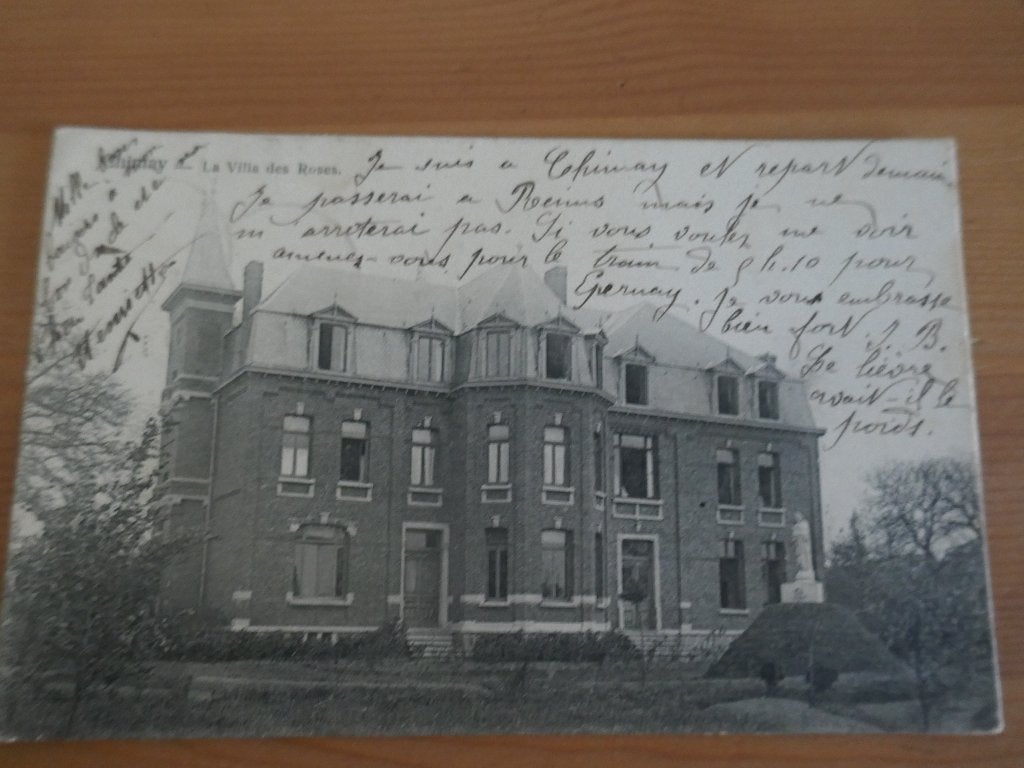 Chimay - La Villa des Roses.
Je suis a Chimay et repart demain
Je passerai a Reims mais je ne
m arreterai pas. Si vous voulez me voir
amenez-vous pour le train de 9 h. 10 pour
Epernay. Je vous embrasse
bien fort J. B.
Le lièvre
avait-il le
poids.